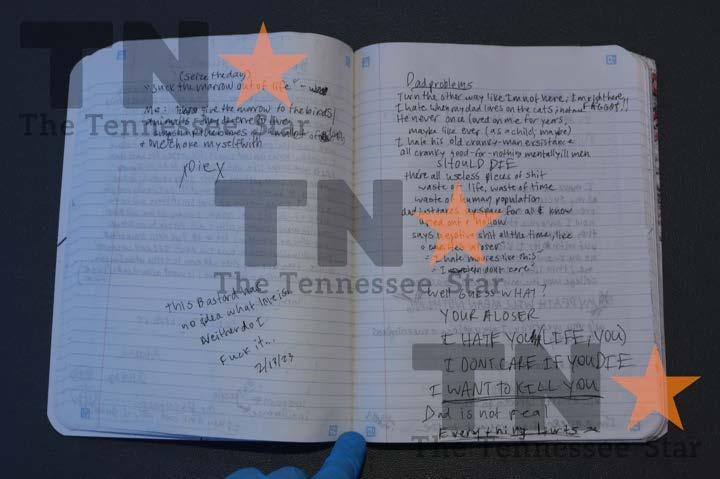 TN
The Tennessee Star
(Seize the day)
"Suck the marrow out of life"
Me: give the marrow to the birds/
animals, they deserve
the bones
+ choke myself with
Die X
This Bastard has
no idea what love is.
Neither do I
Fuck it...
2/13/23
Dad problems
Turn the other way like I'm not here, I'm right here,
I hate when my dad loves on the cats, instead FAGGOT!!
He never once loved on me for years,
maybe like ever (as a child, maybe)
I hate his old cranky-man existance
all cranky good-for-nothing mentally ill men
SHOULD DIE
there all useless pieces of shit
waste of life, waste of time
waste of human population
dad takes up space for all I know
and hollow
says negative shit all the time, like
a loser
I hate like this
I don't care.
TN
The Tennessee Star
Well GUESS WHAT!
YOUR A LOSER
I HATE YOU (LIFE, YOU)
I DONT CARE IF YOU DIE
I WANT TO KILL YOU
Dad is not real
Everything hurts
TN
The Tennessee Star